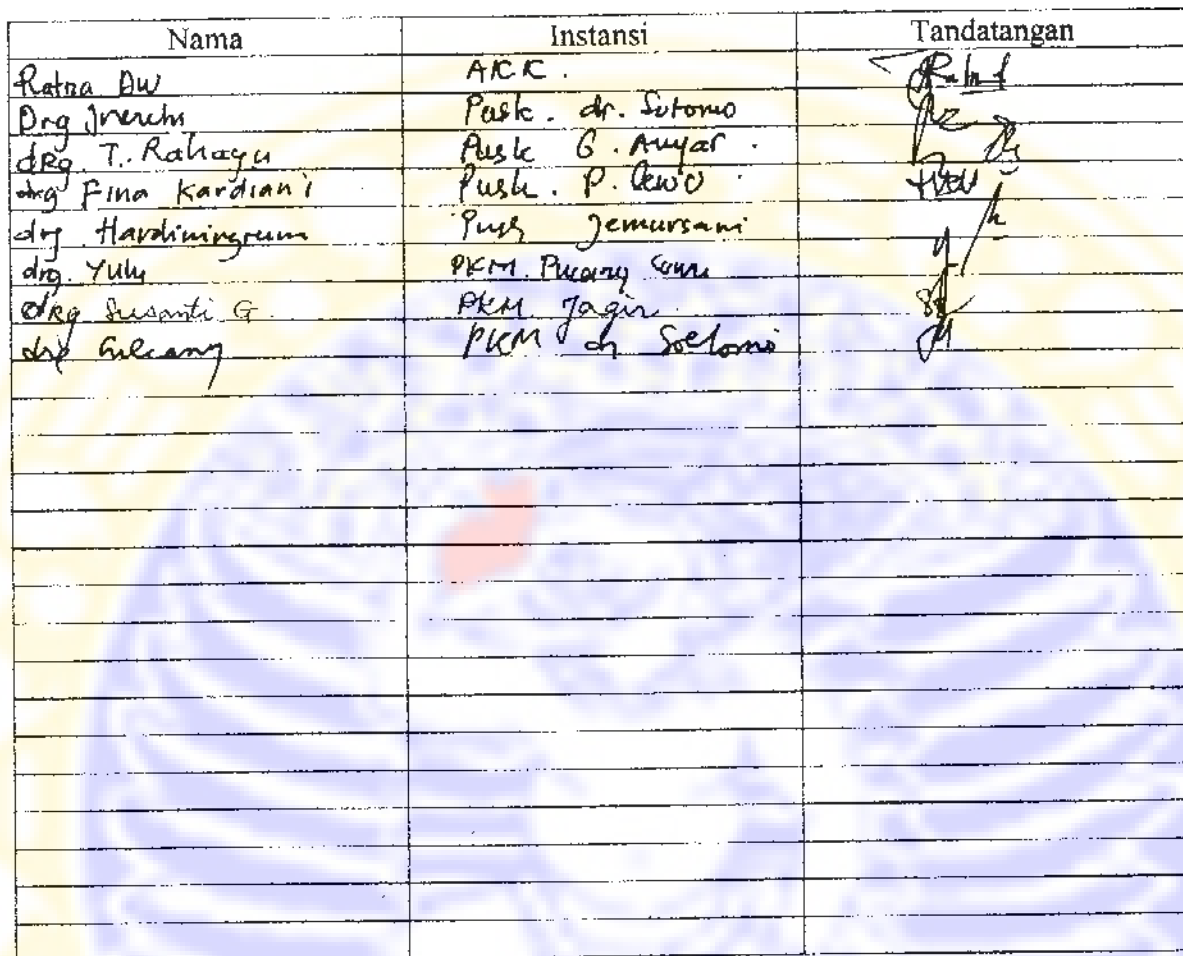 Nama Instansi Tandatangan
Ratna DW AKK.
Drg Pusk. dr. Sutomo
dRg. T. Rahayu Pusk G. Anyar.
drg Fina Kardiani Pusk. P.
drg. Hardiningrum Pusk Jemursari
drg. Yuly PKM. Pucang
dRg Susanti G PKM. Jagir
drg PKM dr Soetomo